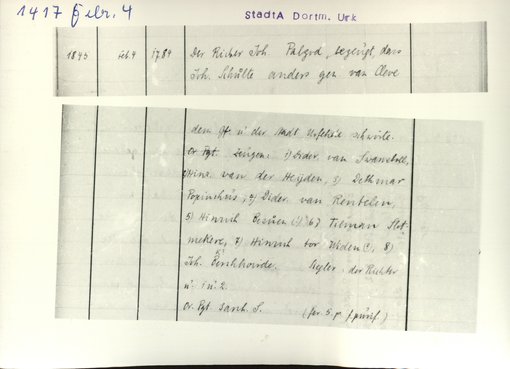 1417 Febr. 4
StadtA Dortm. Urk
1845 Feb. 4 1784 Der Richter Joh. Palgod, bezeugt, dass
Joh. Schulte anders gen. van Cleve
dem u der Stadt Urfehde schwörte.
Or Pgt. Zeugen: 1) Evder. van Swansbell,
2) Hinr. van der Heyden, 3) Dethmar
4) Dider van Rentelin,
5) Hinrich (!) 6) Tileman Slot-
mekere, 7) Hinrich tor Weden (!), 8)
Joh. Siegler: der Richter
u. 1 u. 2
Or. Pgt. 5. (fer. 5. p. f. purif.)